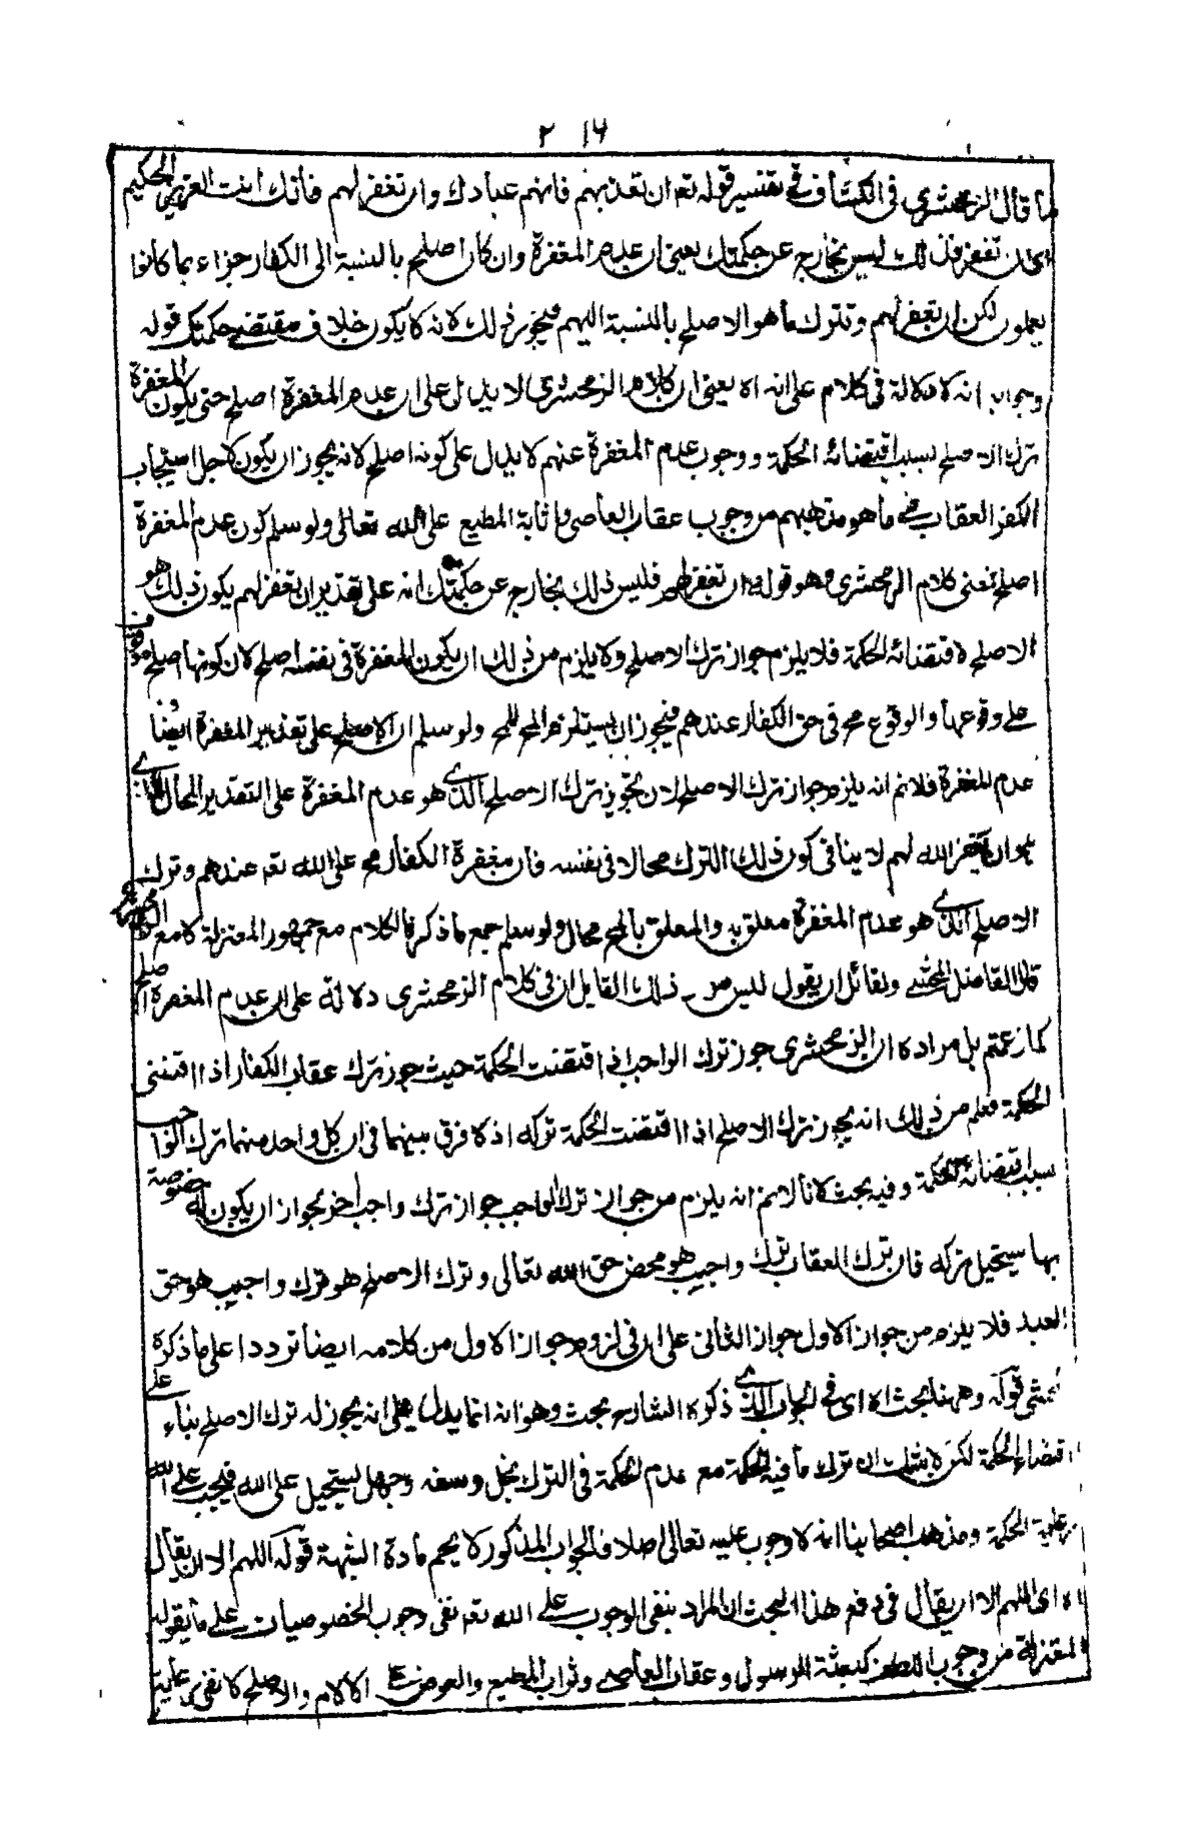 ٢١٦
ما قال الزمخشري في الكشاف في تفسير قوله تعه ان تعذبهم فانهم عبادك وان تغفر لهم فانك انت العزيز الحكيم
اى ان تغفر فذلك ليس بخارج عن حكمتك يعنى ان عدم المغفرة وان كان اصلح بالنسبة الى الكفار جزاء بما كانوا
يعملون لكن ان تغفر لهم وتترك ما هو الاصلح بالنسبة اليهم فيجوز ذلك لانه لا يكون خلاف مقتضى حكمتك قوله
وجوابه انه لا دلالة في كلام على انه اه يعنى ان كلام الزمخشري لا يدل على ان عدم المغفرة اصلح حتى يكون المغفرة
ترك الاصلح بسبب اقتضائه الحكمة ووجوب عدم المغفرة عنهم لا يدل على كونه اصلح لانه يجوز ان يكون لاجل استيجاب
الكفر العقاب على ما هو مذهبهم من وجوب عقاب العاصى واثابة المطيع على الله تعالى ولو سلم كون عدم المغفرة
اصلح فمعنى كلام الزمخشرى وهو قوله ان تغفر لهم فليس ذلك بخارج عن حكمتك انه على تقدير ان تغفر لهم يكون ذلك هو
الاصلح لاقتضائه الحكمة فلا يلزم جواز ترك الاصلح ولا يلزم من ذلك ان يكون المغفرة في نفسه اصلح لان كونها اصلح موقوف
على وقوعها والوقوع مح في حق الكفار عندهم فيجوز ان يستلزم المح المح ولو سلم ان الاصلح على تقدير المغفرة ايضا
عدم المغفرة فلانم انه يلزم جواز ترك الاصلح لان تجويز ترك الاصلح الذى هو عدم المغفرة على التقدير المحال الذى
هو ان يغفر الله لهم لا ينافى كون ذلك الترك محالا في نفسه فان مغفرة الكفار مح على الله تعه عندهم وترك
الاصلح الذى هو عدم المغفرة معلق به والمعلق بالمح محال ولو سلم جمع ما ذكر فالكلام مع جمهور المعتزلة لا مع الزمخشرى
قال الفاضل المحشى ولقائل ان يقول ليس مراد ذلك القايل ان في كلام الزمخشرى دلالة على ان عدم المغفرة اصلح
كما زعمتم بل مراده ان الزمخشرى جوز ترك الواجب اذا اقتضت الحكمة حيث جوز ترك عقاب الكفار اذا اقتضى
الحكمة فعلم من ذلك انه يجوز ترك الاصلح اذا اقتضت الحكمة تركه اذ لا فرق بينهما في ان كل واحد منهما ترك الواجب
بسبب اقتضائه الحكمة وفيه بحث لانا لانم انه يلزم من جواز ترك الواجب جواز ترك واجب اخر لجواز ان يكون له خصوصية
بها يستحيل تركه فان ترك العقاب ترك واجب هو محض حق الله تعالى وترك الاصلح هو ترك واجب هو حق
العبد فلا يلزم من جواز الاول جواز الثانى على ان في لزوم جواز الاول من كلامه ايضا ترددا على ما ذكره
المحشى قوله وههنا بحث اه اى في الجواب الذى ذكره الشارح بحث وهو انه انما يدل على انه يجوز له ترك الاصلح بناء على
اقتضاء الحكمة لكن لا شك ان ترك ما فيه الحكمة مع عدم الحكمة في الترك بخل وسفه وجهل يستحيل على الله فيجب على الله
رعاية الحكمة ومذهب اصحابنا انه لا وجوب عليه تعالى اصلا فالجواب المذكور لا يحم مادة الشبهة قوله اللهم الا ان يقال
اه اى اللهم الا ان يقال في دفع هذا البحث ان المراد بنفى الوجوب على الله تعه نفى وجوب الخصوصيات على ما يقوله
المعتزلة من وجوب اللطف كبعثة الرسول وعقاب العاصى وثواب المطيع والعوض على الالام والاصلح لا نفى رعاية